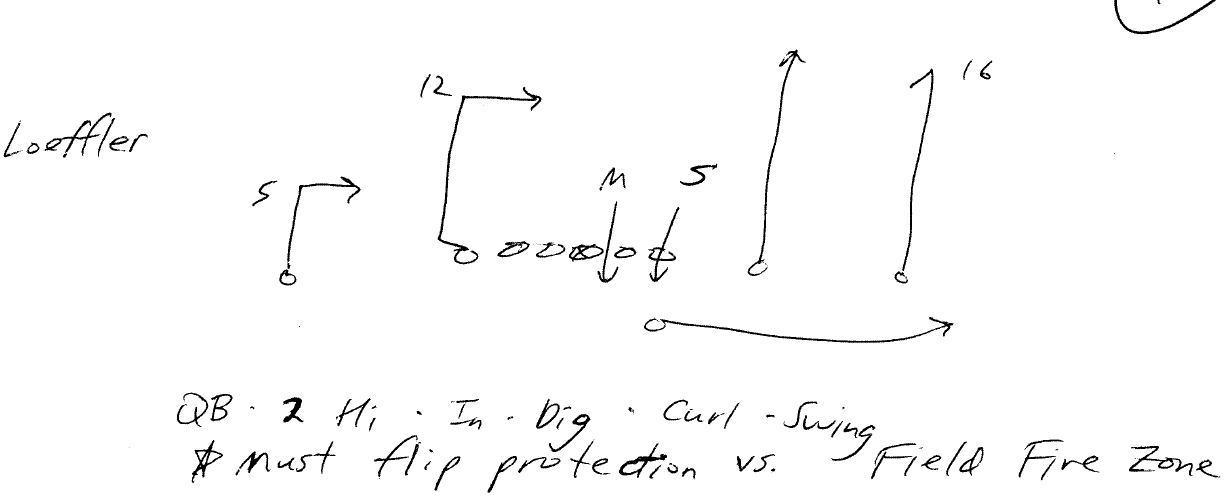 16
12
Loeffler
5
M S
QB · 2 Hi · In · Dig · Curl - Swing
* Must flip protection vs. Field Fire Zone